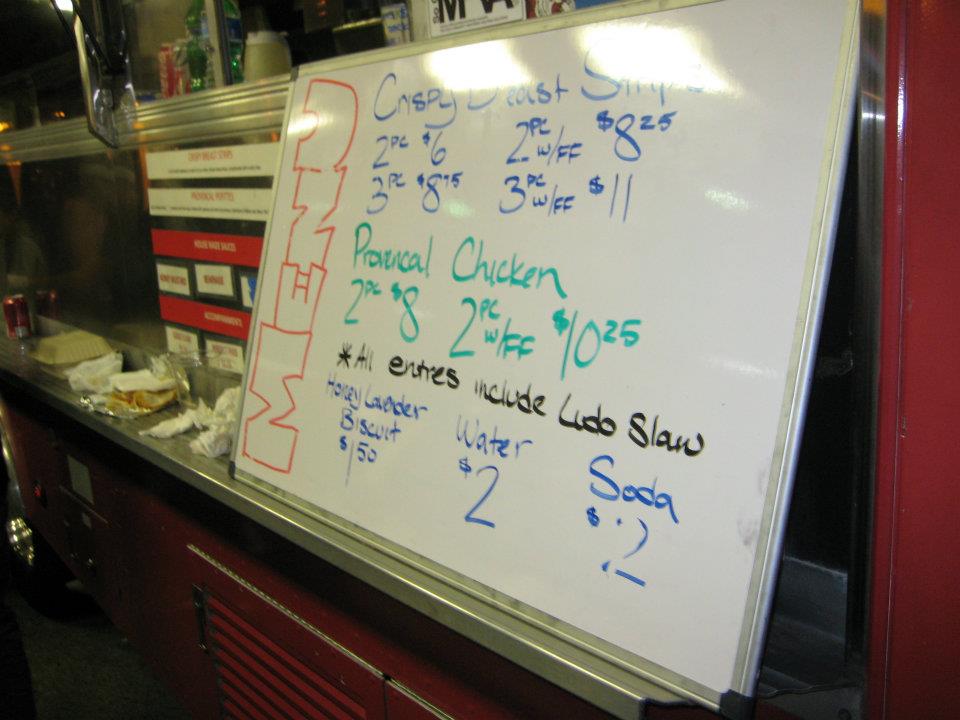 MENU
Crispy Breast Strips
2PC $6 2PC W/FF $8 25
3PC $8 75 3PC W/FF $11
Provencal Chicken
2PC $8 2PC W/FF $10 25
*All entres include Ludo Slaw
Honey Lavender
Biscuit
$1 50
Water
$2
Soda
$2
CRISPY BREAST STRIPS
PROVENCAL PEPITES
HOUSE MADE SAUCES
HONEY MUSTARD
BEARNAISE
ACCOMPANIMENTS